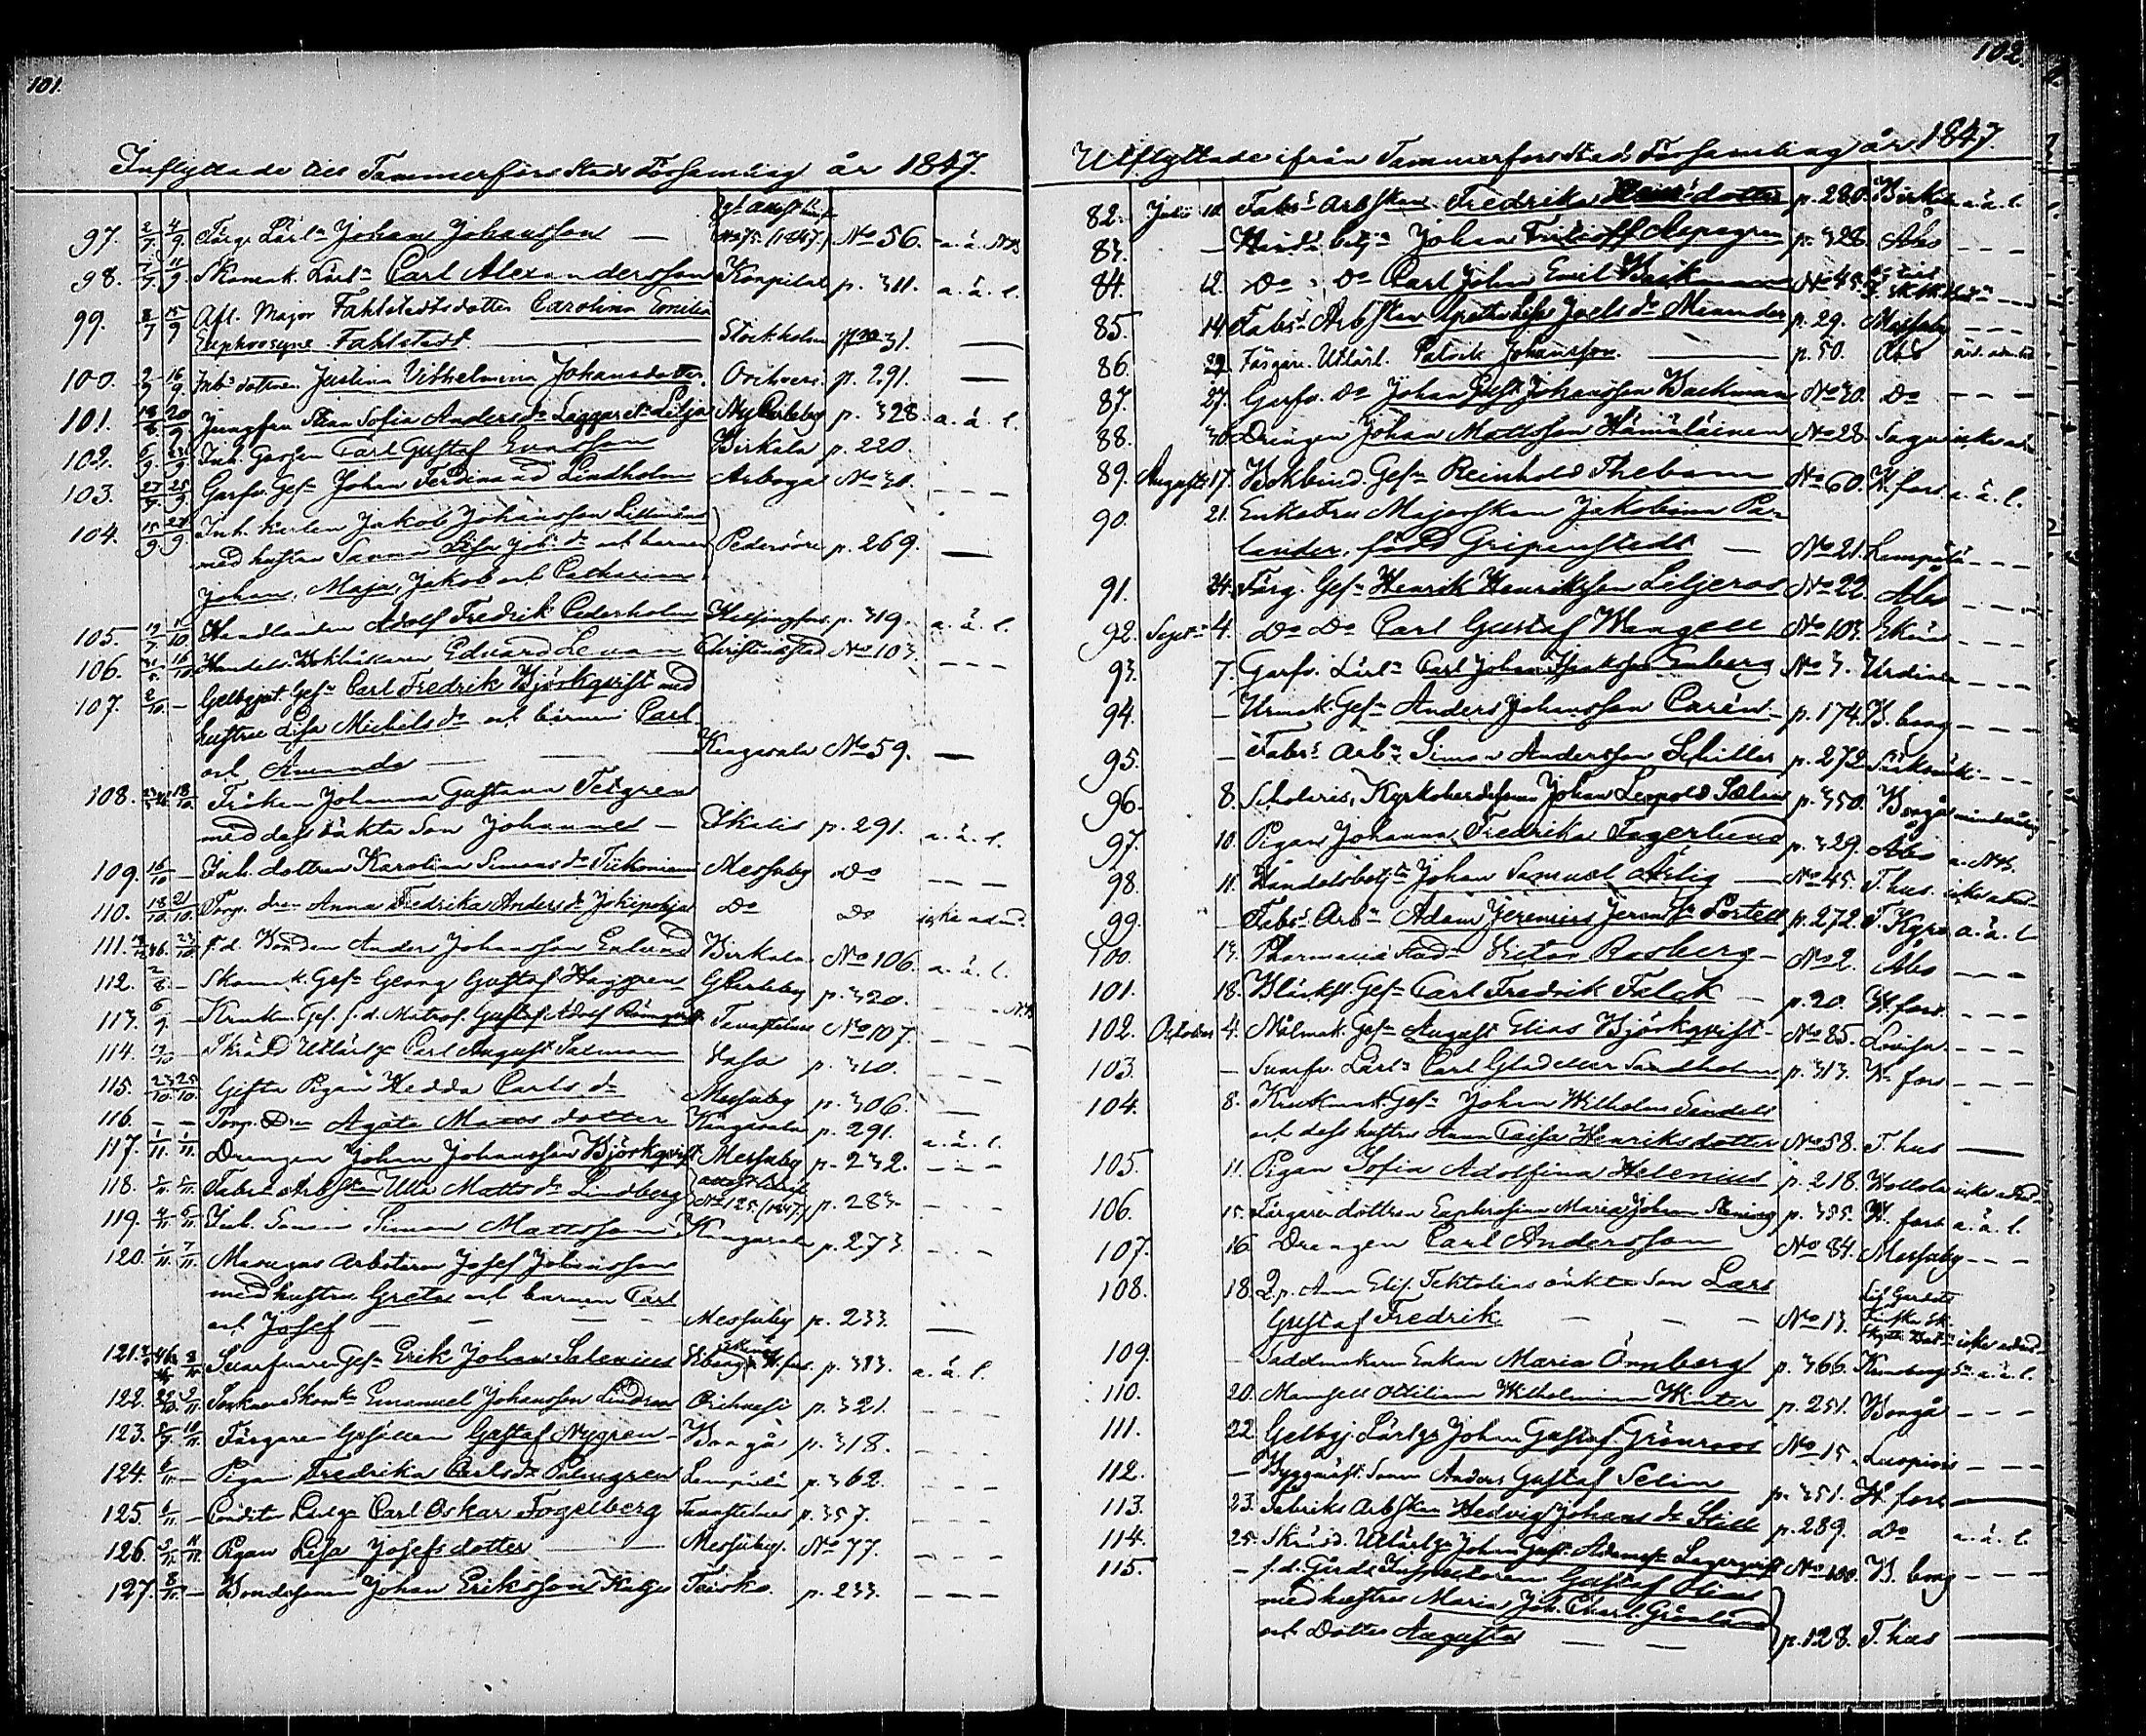 101.
Inflyttade till Tammerfors Stads Församling år 1847.
97. 2/7 4/9 Färg. Lärl. Johan Johansson — No 75 (1847) No 56. a. ä. NB
98. 11/9 Skomak. Lärl. Carl Alexandersson p. 311. a. ä. l.
99. 8/7 15/9 Afl. Major Fahlstedts dotter Carolina Emilia
Euphrosyne Fahlstedt — Stockholm 31. —
100. 2/9 16/9 Inh. dottren Justina Vilhelmina Johansdotter Orihvesi p. 291. —
101. 18/8 20/9 Jungfru Stina Sofia Anders dr Lilja Ny Carleby p. 328. a. ä. l.
102. 6/9 23/9 Inh. Gossen Carl Gustaf Birkala p. 220.
103. 27/9 25/9 Garfv. Gesn Johan Ferdinand Lindholm Arboga No 30. — — —
104. 15/9 27/9 Inh. Karlen Jakob Johansson
med hustrun Sanna Lisa Joh. dr och barnen Pedersöre p. 269. —
Johan, Maja, Jakob och Catharina
105. Handlanden Adolf Fredrik Cederholm Helsingfors p. 319. a. ä. l.
106. 16/10 Handels Bokhållaren Edvard Levan Christinestad No 103. — — —
107. 2/10 — Gelbgjut. Gesn Carl Fredrik Björkqvist med
hustru Lisa Michels dr och barnen Carl
och Amanda — Kangasala No 59. —
108. 18/10 Fröken Johanna Gustava Tergren
med dess oäkta Son Johannes — Ikalis p. 291. a. ä. l.
109. 16/10 — Inh. dottren Karolina Simons dr Messuby Do — —
110. 18/10 21/10 Torp. drn Anna Fredrika Anders dr Jokipohja Do Do icke admit.
111. 23/10 f.d. Bonden Anders Johansson Enlund Birkala No 106. a. ä. l.
112. 2/8 — Skomak. Gesn Georg Gustaf Häggren G. Carleby p. 320. — — NB
113. 6/9 — Krukm. Ges. f.d. Matros Gustaf Adolf Tavastehus No 107. — — —
114. — Skrädd. Utlärlge Carl August Salmen Vasa p. 310. — — —
115. 23/10 25/10 Gifta Pigan Hedda Carls dr Messuby p. 306. —
116. — — Torp. Drn Agata Matts dotter Kangasala p. 291. a. ä. l.
117. 1/11 1/11 Drengen Johan Johansson Björkqvist Messuby p. 232. — — —
118. 2/11 2/11 Fabrs Arbskan Ulla Matts dr Lindberg No 125 (1847) p. 283. — — —
119. 4/11 5/11 Inh. Sonen Simon Mattsson Kangasala p. 273 — — —
120. 1/11 7/11 Masugns Arbetaren Josef Johansson
med hustru Greta och barnen Carl
och Josef — — — Messuby p. 233. —
121. Svarfvare Gesn Erik Johan Selenius p. 313. a. ä. l.
122. Sockne Skomr Emanuel Johansson Lindroos Orihvesi p. 321. — — —
123. Färgare Gesällen Gustaf Nygren — Borgå p. 318. — — —
124. 6/11 — Pigan Fredrika Carls dr Palmgren Lempälä p. 362. — — —
125. 6/11 — Conditor Lärlge Carl Oskar Fogelberg Tavastehus p. 357. — — —
126. 5/11 11/11 Pigan Lisa Josefsdotter — Messuby. No 77. — — —
127. 8/11 — Bondesonen Johan Eriksson Teisko. p. 233. — — —
102.
Utflyttade ifrån Tammerfors Stads Församling år 1847.
82. Julii 10. Fabrs Arbskan Fredrika dotter p. 280. Birkala a. ä. l.
83. — Handsbetjn Johan Fritioff Aspegren p. 328. Åbo — — —
84. 12. Do Do Carl John Emil No 45. — —
85. 14. Fabrs Arbskan Joels dr Meander p. 29. Messuby — — —
86. 22. Färgare Utlärl. Patrik Johansson. — p. 50. Åbo
87. 27. Garfv. Do Johan Gust. Johansson Backman No 30. Do — — —
88. 30. Drengen Johan Mattsson Hämäläinen No 28. Sagu icke adm.
89. Augusti 17. Bokbind. Gesn Reinhold Thebom No 60. H. fors a. ä. l.
90. 21. Enkefru Majorskan Jakobina
lander, född Gripenstedt — No 21. Lempälä — — —
91. 24. Färg. Gesn Henrik Henriksson Liljeroos No 22. Åbo — — —
92. Sept. 4. Do Do Carl Gustaf Wangell No 103. Ekenäs — — —
93. 7. Garfv. Lärln Carl Johan Enberg No 3. Urdiala — — —
94. — Urmak. Gesn Anders Johansson Carén — p. 174. W. borg — — —
95. — Fabrs Arbn Simon Andersson Schiller p. 272. — — —
96. 8. Scholaris, Kyrkoherdesonen Johan Leopold Salin p. 350. Borgå minderårig
97. 10. Pigan Johanna Fredrika Fagerlund p. 329. Åbo a. NB.
98. 11. Handelsbetjn Johan Samuel Ärlig — No 45. T. hus icke adm.
99. — Fabrs Arbn Adam Jeremias Jerem. Sn Fortell p. 272. T. Kyro a. ä. l.
100. 13. Pharmacie Stud. Victor Rosberg — No 2. Åbo — — —
101. 18. Bläcksl. Gesn Carl Fredrik Falck — p. 20. H. fors — — —
102. October 4. Målmak. Gesn August Elias Björkqvist — No 85. Lovisa — — —
103. — Svarfv. Lärln Carl Sandholm p. 313. H. fors — — —
104. 8. Krukmak. Gesn Johan Wilhelm Sandell
och dess hustru Anna Caisa Henriksdotter No 58. T. hus —
105. 11. Pigan Sofia Adolfina Helenius p. 218. Hollola icke adm.
106. 15. Färgaredottren Euphrosine Maria Johanna p. 355. H. fors a. ä. l.
107. 16. Drengen Carl Andersson No 84. Messuby — — —
108. 18. Qp. Anna Elis. Tektolins oäkta Son Lars
Gustaf Fredrik — — — No 13. icke admit.
109. — Sadelmakare Enkan Maria Örnberg p. 366. a. ä. l.
110. 20. Mamsell Ottiliana Wilhelmina Winter p. 251. Borgå — — —
111. 22. Gelbgj. Lärlge Johan Gustaf Grönroos No 15. Kuopio — — —
112. — Byggmäst. Sonen Anders Gustaf Selin p. 351. H. fors —
113. 23. Fabriks Arbskan Hedvig Johans dr Still p. 289. Do a. ä. l.
114. 25. Skrädd. Utlärlge Johan Gust. Adamss. Lagerqvist No 100. W. borg — — —
115. — f.d. Gårds Inspectoren Gustaf Elias
med hustru Maria Joh. Charl. Grönlund
och Dotter Augusta — — p. 128. T. hus —